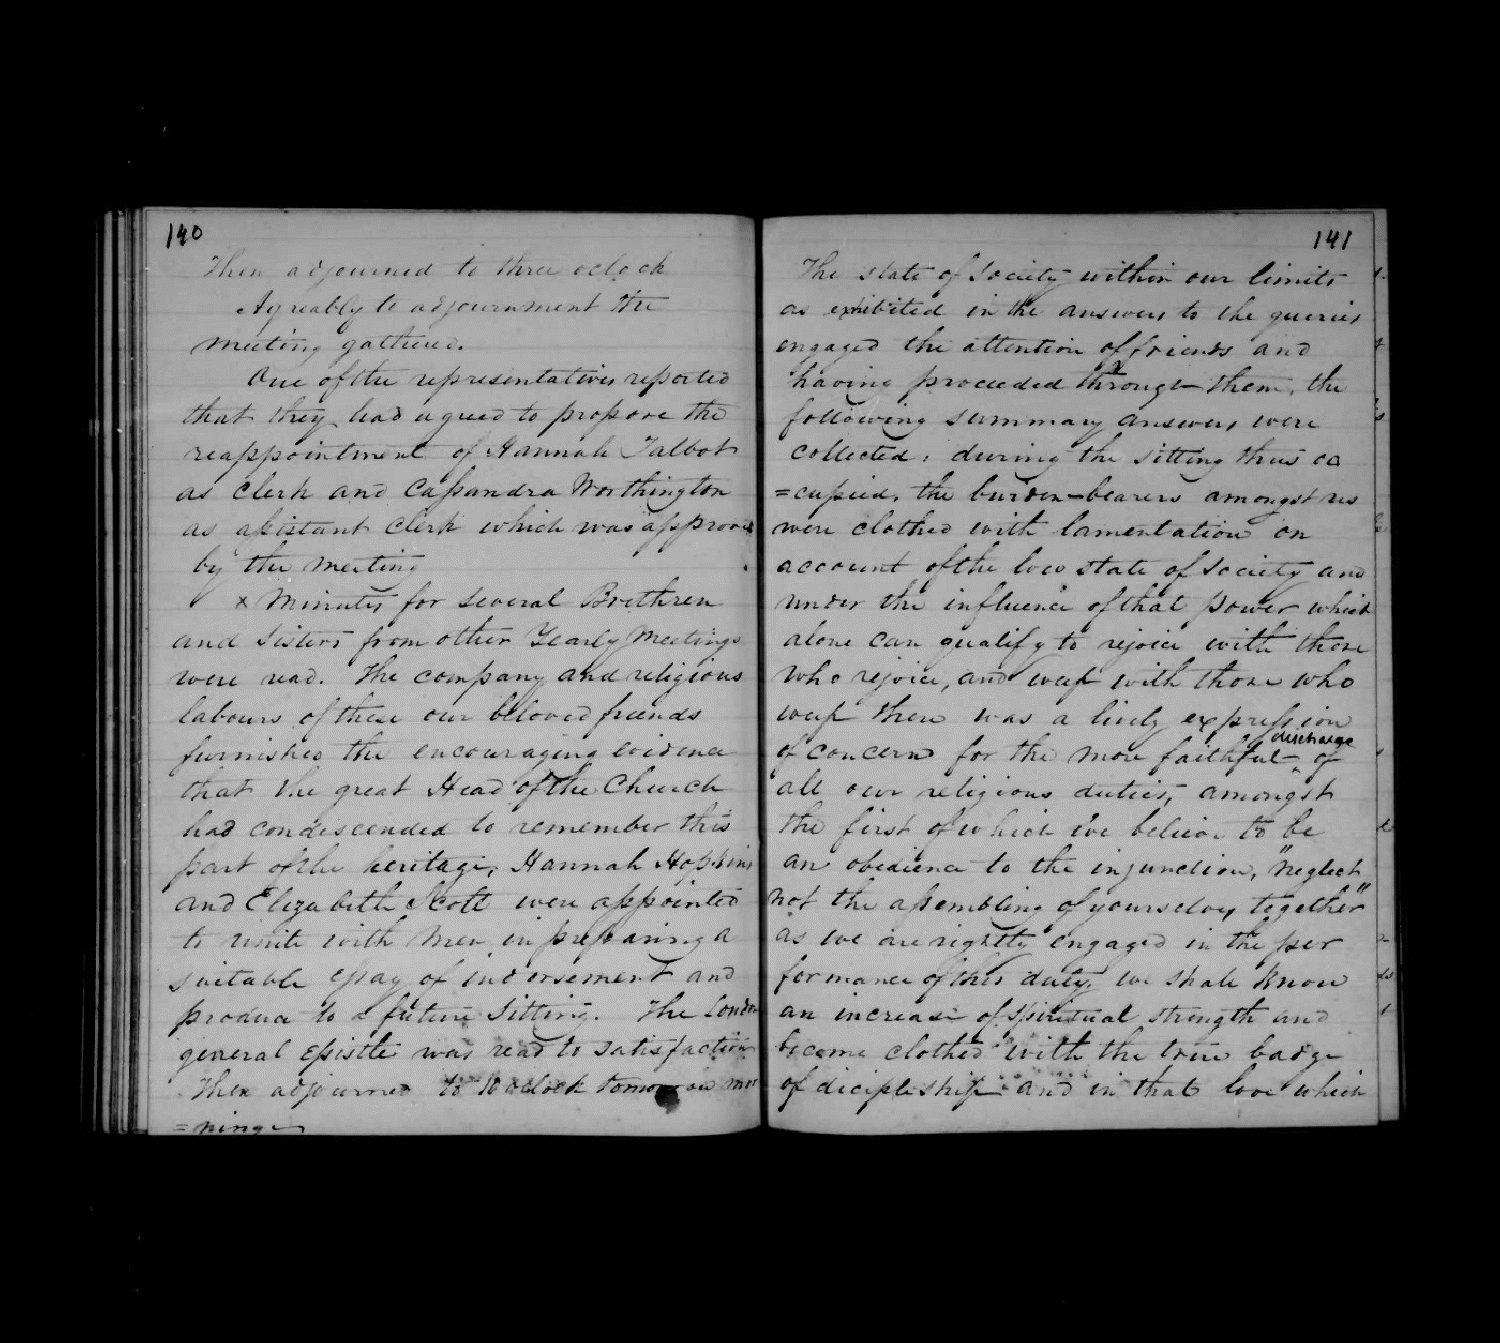 140
Then adjourned to three oclock
Agreably to adjournment the
meeting gathered.
One of the representatives reported
that they had agreed to propose the
reappointment of Hannah Talbot
as Clerk and Cassandra Worthington
as assistant Clerk which was approved
by the meeting
x Minutes for several Brethren
and Sisters from other Yearly Meetings
were read. The company and religious
labours of these our beloved friends
furnished the encouraging evidence
that the great Head of the Church
had condescended to remember this
part of the heritage, Hannah Hopkins
and Elizabeth Scott were appointed
to unite with Men in preparing a
suitable essay of indorsement and
produce to a future Sitting. The London
general Epistle was read to satisfaction
Then adjourned to 10 oclock tomorrow mor
=ning
141
The state of Society within our limits
as exhibited in the answers to the queries
engaged the attention of friends and
having proceeded through them, the
following summary answers were
collected, during the sitting thus oc
=cupied, the burden-bearers amongst us
were clothed with lamentation on
account of the low state of Society and
under the influence of that power which
alone can qualify to rejoice with those
who rejoice, and weep with those who
weep there was a lively expression
of concern for the more faithful discharge of
all our religious duties, amongst
the first of which we believe to be
an obedience to the injunction, "neglect
not the assembling of yourselves together"
as we are rightly engaged in the per
formance of this duty, we shall know
an increase of Spiritual strength and
become clothed with the true badge
of discipleship and in that love which